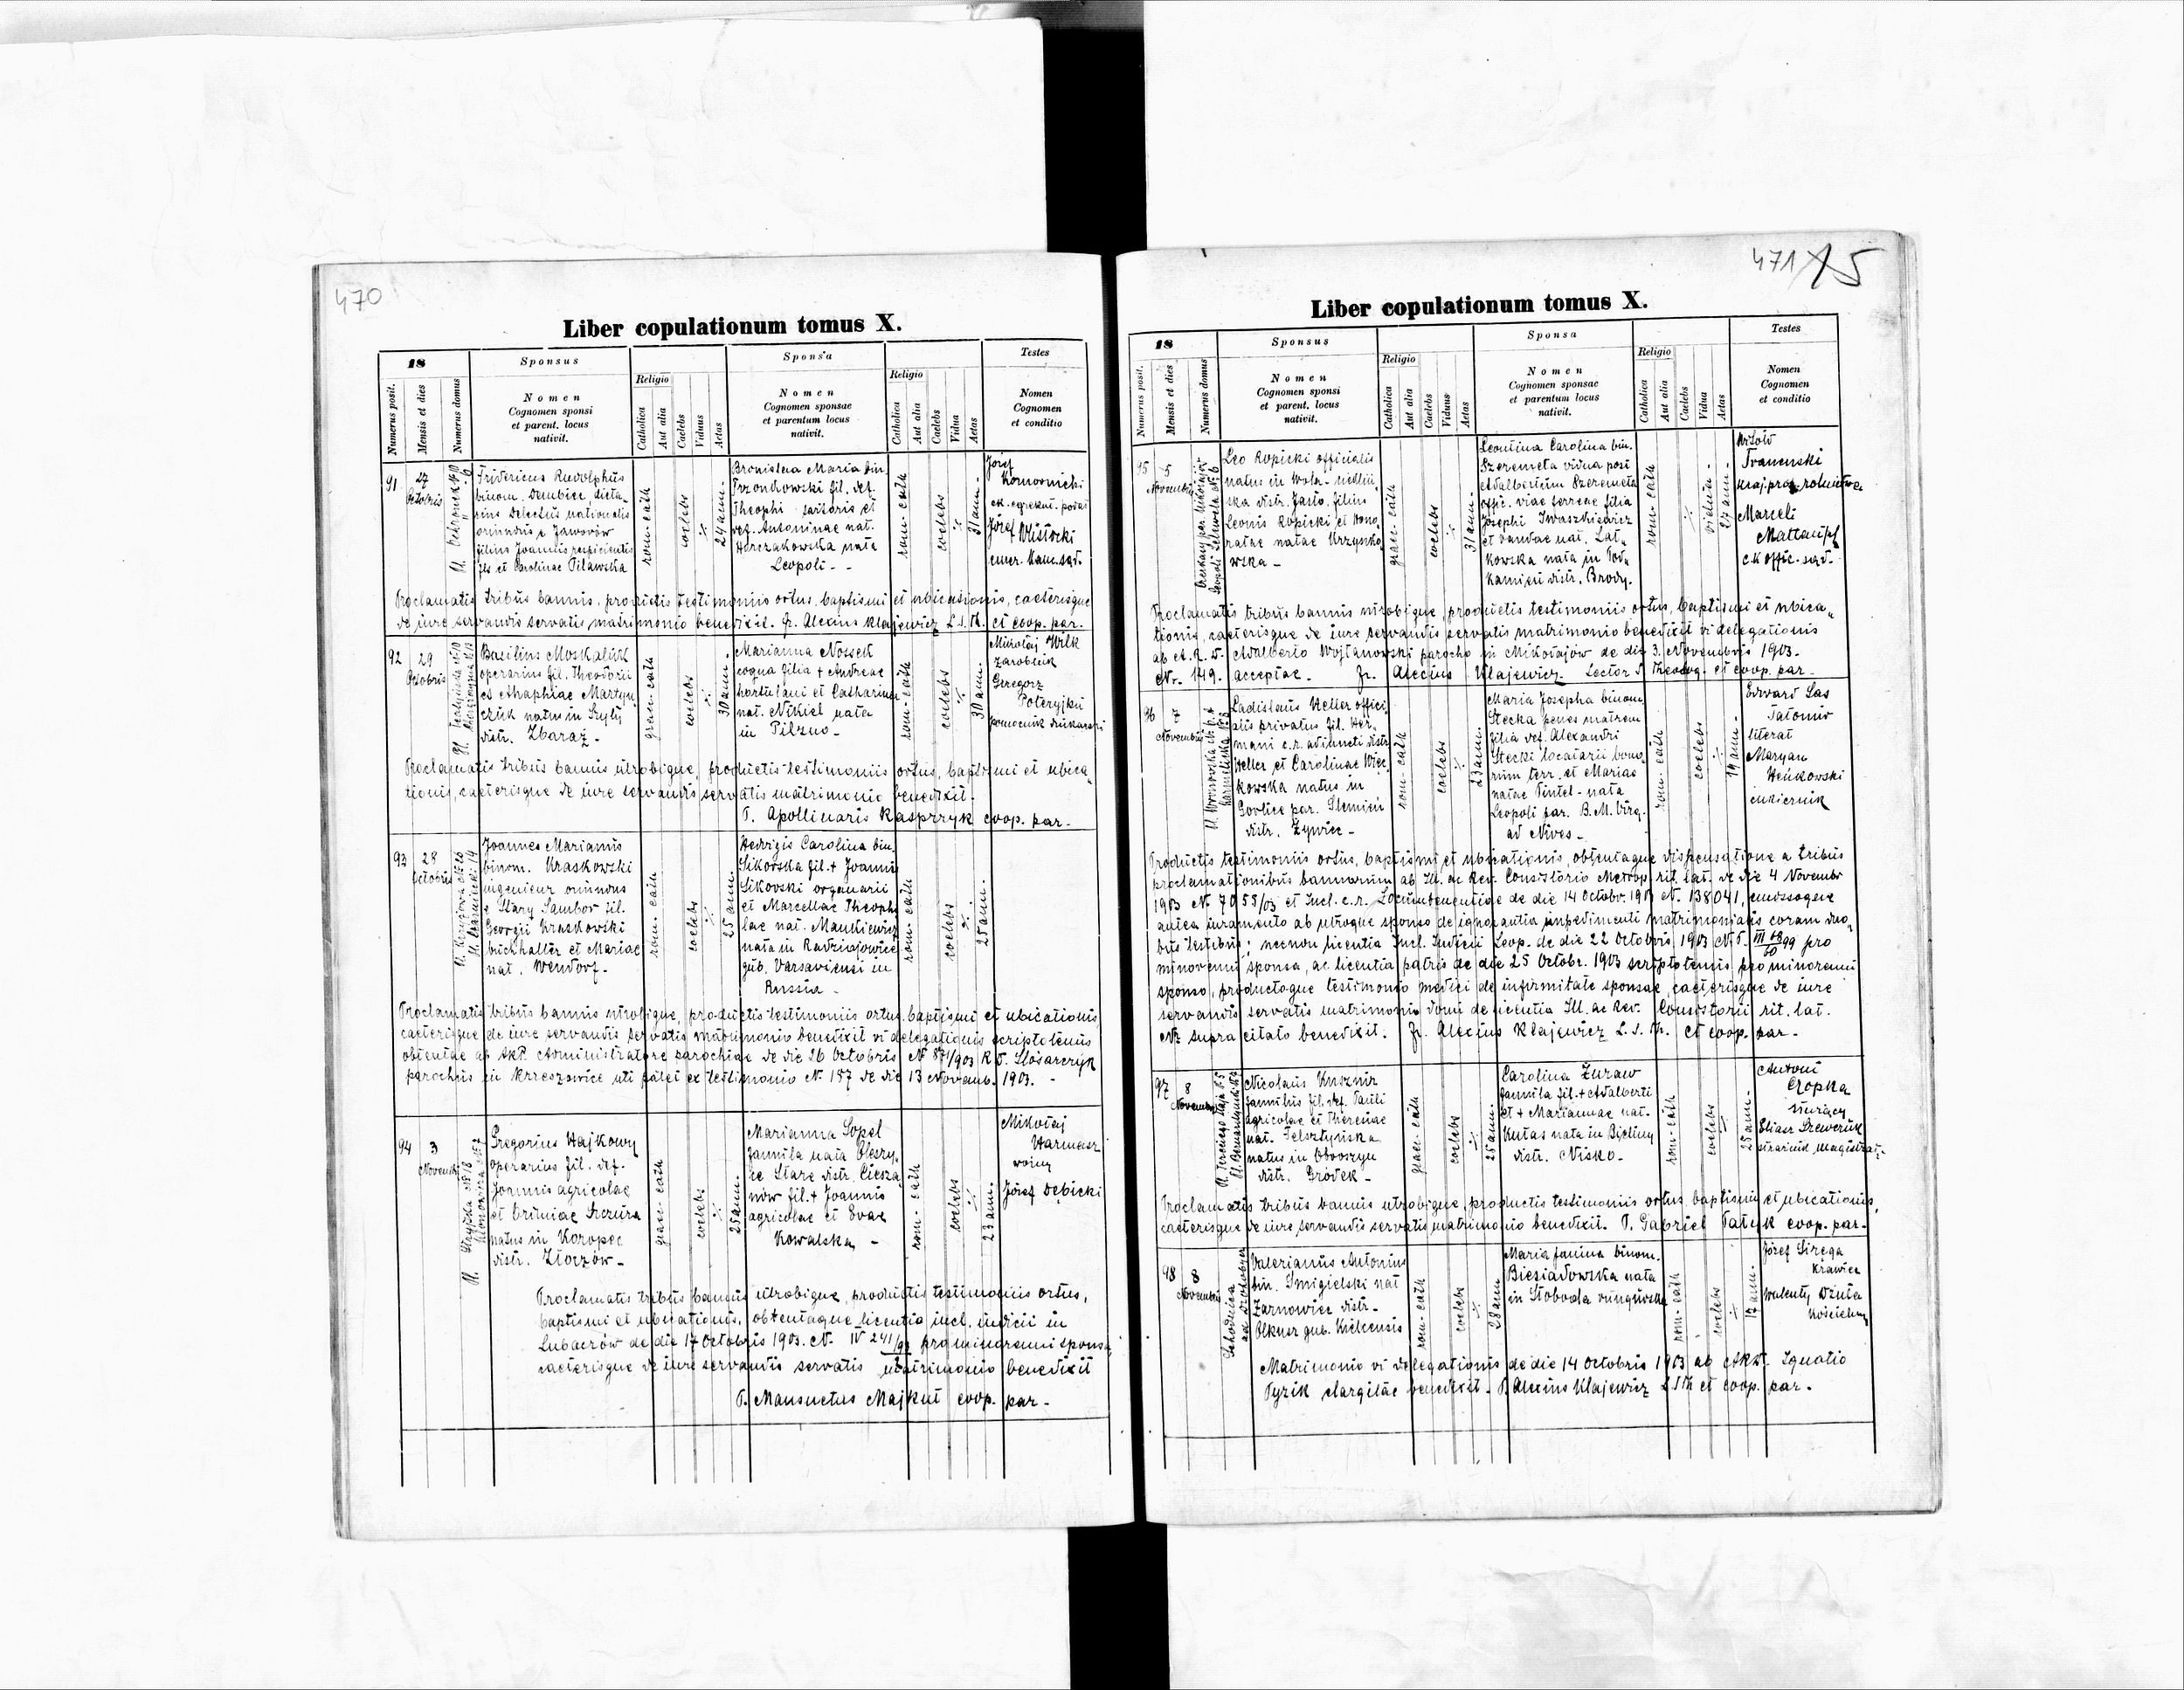 470
Liber copulationum tomus X.
18
Sponsus
Sponsa
Testes
Numerus posit.
Mensis et dies
Numerus domus
Nomen
Cognomen sponsi
et parent. locus
nativit.
Religio
Catholica
Aut alia
Caelebs
Viduus
Aetas
Nomen
Cognomen sponsae
et parentum locus
nativit.
Religio
Catholica
Aut alia
Caelebs
Vidua
Aetas
Nomen
Cognomen
et conditio
91
27
Octobris
Fridericus Rudolphus
binom. Dembicc dieta-
rius Delectus nationalis
oriundus e Jaworów
filius Joannis
et Carolinae Pilawska
rom-cath
coelebs
24 ann.
Bronislaa Maria bin.
Przondkowski fil. def.
Theophi sartoris et
def. Antoninae nat.
Horczakowska nata
Leopoli - -
rom-cath
coelebs
31 ann.
Józef
Komornicki
ck. egzekut. podat
Józef Wisłocki
emer. kanc. sąd.
Proclamatis tribus bannis, productis testimoniis ortus, baptismi et ubicationis, caeterisque
de iure servandis servatis matrimonio benedixit. fr. Alexius Klajewicz L. S. Th. et coop. par.
92
29
Octobris
Basilius Moskaluk
operarius fil. Theodorii
et Ahaphiae Martyn
czuk natus in Szyły
distr. Zbaraż -
graec-cath
coelebs
30 ann.
Marianna Nossek
coqua filia + Andreae
hortulani et Catharinae
nat. Nikiel nata
in Pilzno -
rom-cath
coelebs
30 ann.
Mikołaj Wilk
zarobnik
Grzegorz
Poteryjko
pomocnik drukarski
Proclamatis tribus bannis utrobique, productis testimoniis ortus, baptismi et ubica„
tionis, caeterisque de iure servandis servatis matrimonio benedixit.
P. Apollinaris Kasprzyk coop. par.
93
28
Octobris
Joannes Marianus
binom. Kraskowski
ingenieur oriundus
e Stary Sambor fil.
Georgii Kraskowski
buchhalter et Mariae
nat. Wendorf -
rom-cath
coelebs
25 ann.
Hedvigis Carolina bin.
Sikorska fil. + Joannis
Sikorski organarii
et Marcellae Theophi
lae nat. Mankiewicz
nata in Radziejowice
gub. Varsaviensi in
Russia -
rom-cath
coelebs
25 ann.
Proclamatis tribus bannis utrobique, productis testimoniis ortus, baptismi et ubicationis,
caeterisque de iure servandis servatis matrimonio benedixit vi delegationis scriptotenus
obtentae ab Administratore parochiae de die 26 Octobris N. 871/903 R. D. Ślósarczyk
parochus in Krzeszowice uti patet ex testimonio N. 187 de die 13 Novemb. 1903. -
94
3
Novembr
Gregorius Hajkowy
operarius fil. def.
Joannis agricolae
et Eviniae Szczura
natus in Koropec
distr. Złoczów -
graec-cath
coelebs
25 ann.
Marianna Sopel
famula nata Oleszy-
ce Stare distr. Ciesza
nów fil. + Joannis
agricolae et Evae
Kowalska -
rom-cath
coelebs
23 ann.
Mikołaj
Harmasz
woźny
Józef Dębicki
Proclamatis tribus bannis utrobique, productis testimoniis ortus,
baptismi et ubicationis, obtentaque licentia incl. iudicii in
Lubaczów de die 17 Octobris 1903. N. IV 241/93 pro minorenni sponsa
caeterisque de iure servandis servatis matrimonio benedixit
P. Mansuetus Majkut coop. par -
471 15
Liber copulationum tomus X.
18
Sponsus
Sponsa
Testes
Numerus posit.
Mensis et dies
Numerus domus
Nomen
Cognomen sponsi
et parent. locus
nativit.
Religio
Catholica
Aut alia
Caelebs
Viduus
Aetas
Nomen
Cognomen sponsae
et parentum locus
nativit.
Religio
Catholica
Aut alia
Caelebs
Vidua
Aetas
Nomen
Cognomen
et conditio
95
5
Novembris
Leo Kopicki officialis
natus in Wola-
ska distr. Jasło. filius
Leonis Kopicki et Hono
ratae natae Krzysko
wska -
graec-cath
coelebs
31 ann.
Leontina Carolina bin.
Szeremeta vidua post
Adalbertum Szeremeta
offic. viae ferreae filia
Josephi Iwaszkiewicz
et Vandae nat. Lat„
kowska nata in Pod„
kamień distr. Brody.
rom-cath
vidua
27 ann.
Witold
Traczewski
Marceli
ck offic. sąd.
Proclamatis tribus bannis utrobique, productis testimoniis ortus, baptismi et ubica„
tionis, caeterisque de iure servandis servatis matrimonio benedixit vi delegationis
ab A. R. D. Adalberto Wojtanowski parocho in Mikołajów de die 3. Novembris 1903.
Nr. 149. acceptae. Fr. Alexius Klajewicz Lector S. Theolog. et coop. par -
96
7
Novembris
Ladislaus Keller offici„
alis privatus fil. Her„
mani c.r. adiuncti distr
Keller et Carolinae Więc„
kowska natus in
Gorlice par. Ślemień
distr. Żywiec -
rom-cath
coelebs
23 ann.
Maria Josepha binom
Stecka penes matrem
filia def. Alexandri
Stecki locatarii bono„
rum terr. et Mariae
natae Pintel - nata
Leopoli par. B. M. Virg.
ad Nives -
rom-cath
coelebs
19 ann.
Edward Las
Tatomir
literat
Maryan
Heńkowski
cukiernik
Productis testimoniis ortus, baptismi et ubicationis, obtentaque dispensatione a tribus
proclamationibus bannorum ab Ill. ac Rev. Consistorio Metrop. rit. lat. de die 4 Novembr
1903 N. 7055/03 et Incl. c.r. Locumtenentiae de die 14 Octobr. 1903 N. 138041, emissoque
antea iuramento ab utroque sponso de ignorantia impedimenti matrimonialis coram duo„
bus testibus; necnon licentia Incl. Iudicii Leop. de die 22 Octobris 1903 N. P. III 68/60 99 pro
minorenni sponsa, ac licentia patris de die 25 Octobr. 1903 scriptotenus pro minorenni
sponso, productoque testimonio medici de infirmitate sponsae, caeterisque de iure
servandis servatis matrimonio domi de licentia Ill. ac Rev. Consistorii rit. lat.
Nr. supra citato benedixit. Fr. Alexius Klajewicz L. S. Th. et coop. par -
97
8
Novembr
Nicolaus Kusznir
famulus fil. def. Pauli
agricolae et Theresiae
nat. Felsztyńska
natus in Obroszyn
distr. Gródek -
graec-cath
coelebs
25 ann.
Carolina Żuraw
famula fil. + Adalberti
et + Mariannae nat.
Kutas nata in Bieliny
distr. Nisko -
rom-cath
coelebs
25 ann -
Antoni
Czopka
służący
Eliasz Szewczuk
strażnik magistrat.
Proclamatis tribus bannis utrobique, productis testimoniis ortus baptismi et ubicationis,
caeterisque de iure servandis servatis matrimonio benedixit. P. Gabriel Patyk coop. par -
98
8
Novembris
Valerianus Antonius
bin. Śmigielski nat
Żarnowiec distr -
Olkusz gub. Kielcensis
rom-cath
coelebs
28 ann
Maria Janina binom.
Biesiadowska nata
in Słoboda rungurska
rom-cath
coelebs
17 ann.
Józef Sirega
krawiec
Walenty Dziuba
kościelny
Matrimonio vi delegationis de die 14 Octobris 1903 ab Ignatio
Pyzik elargitae benedixit - P. Alexius Klajewicz L S Th et coop. par -